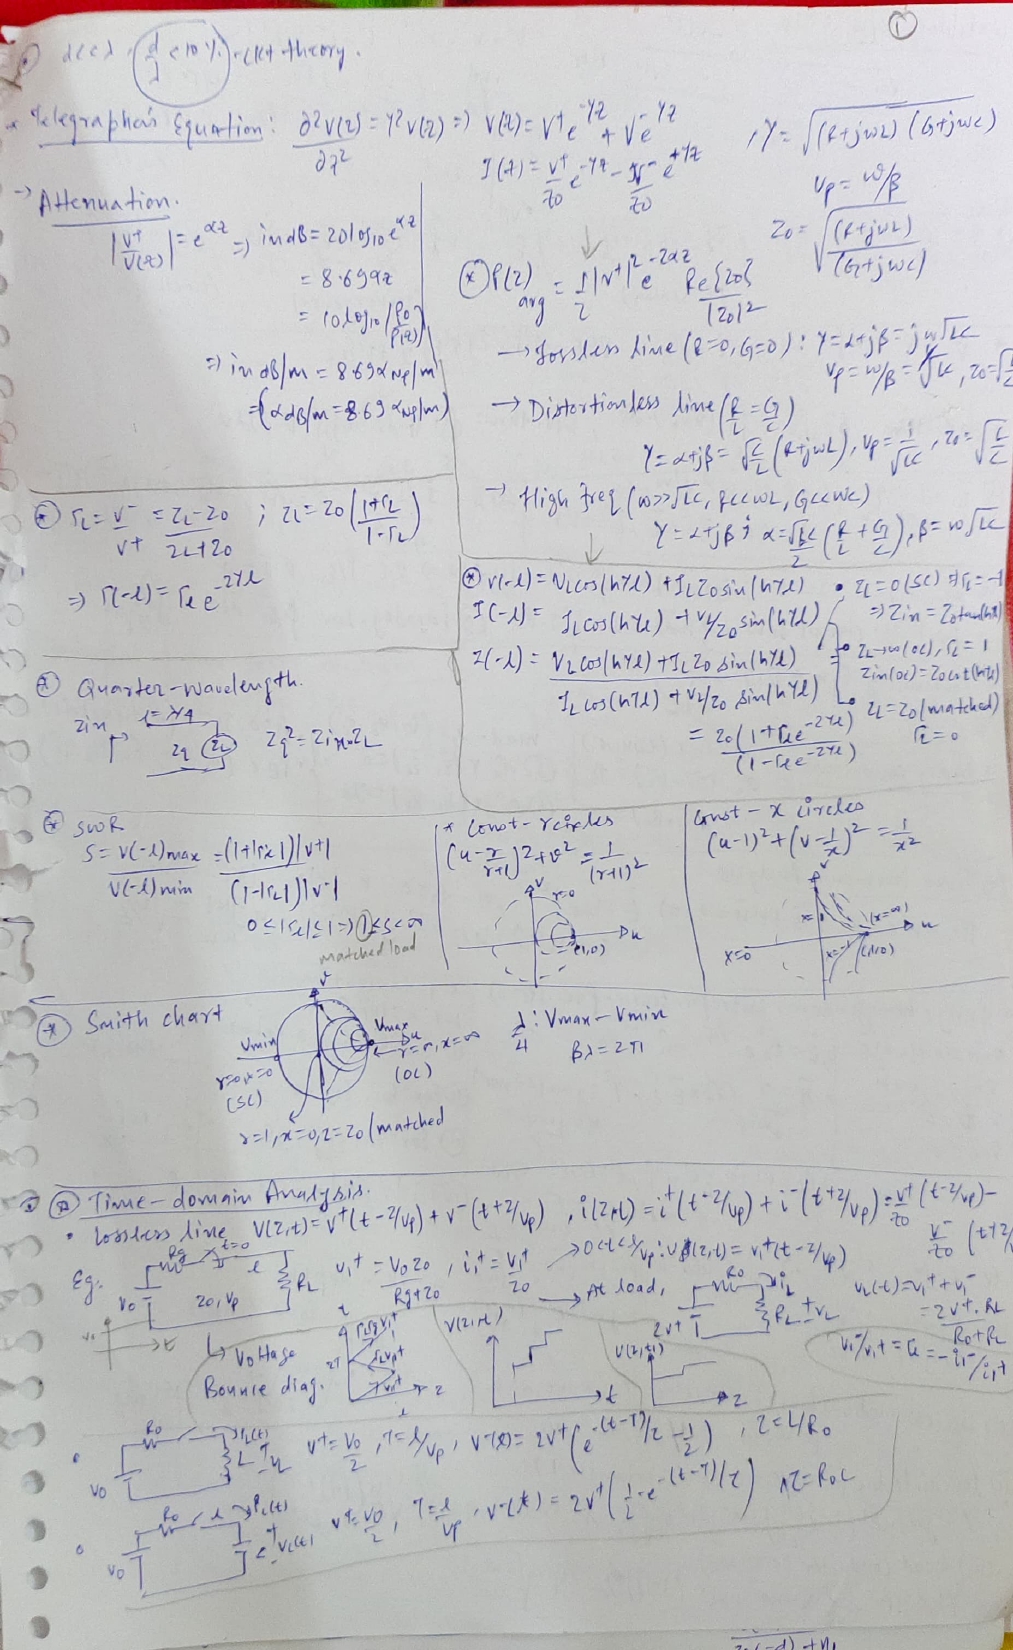 ①
d<<λ, d/λ <10% → ckt theory.
* Telegrapher's Equation: ∂²V(z)/∂z² = γ²V(z) => V(z) = V⁺e^-γz + V⁻e^γz , γ = √((R+jωL)(G+jωC))
I(z) = V⁺/Z0 e^-γz - V⁻/Z0 e^+γz
vp = ω/β
Z0 = √((R+jωL)/(G+jωC))
→ Attenuation.
|V⁺/V(z)| = e^αz => in dB = 20log10 e^αz
= 8.69αz
= 10log10(P0/P(z))
=> in dB/m = 8.69 α Np/m
=> (α dB/m = 8.69 α Np/m)
* P(z)avg = 1/2 |V⁺|² e^-2αz Re{Z0}/|Z0|²
→ Lossless line (R=0, G=0): γ = α+jβ = jω√LC
vp = ω/β = 1/√LC, Z0 = √
→ Distortionless line (R/L = G/C)
γ = α+jβ = √(C/L) (R+jωL), vp = 1/√LC, Z0 = √(L/C)
→ High freq (ω>>√LC, R<<ωL, G<<ωC)
γ = α+jβ ; α = √LC/2 (R/L + G/C), β = ω√LC
* ΓL = V⁻/V⁺ = (ZL-Z0)/(ZL+Z0) ; ZL = Z0 ((1+ΓL)/(1-ΓL))
=> Γ(-l) = ΓL e^-2γl
* V(-l) = VL cos(hγl) + IL Z0 sin(hγl)
I(-l) = IL cos(hγl) + VL/Z0 sin(hγl)
Z(-l) = (VL cos(hγl) + IL Z0 sin(hγl)) / (IL cos(hγl) + VL/Z0 sin(hγl))
= Z0(1+ΓL e^-2γl)/(1-ΓL e^-2γl)
• ZL=0 (SC) ΓL = -1
=> Zin = Z0 tan(h
ZL→∞ (OC), ΓL = 1
Zin(OC) = Z0 cot(h
ZL=Z0 (matched)
ΓL = 0
* Quarter-wavelength.
Zin l=λ/4
Zq ZL Zq² = Zin.ZL
* SWR
S = V(-l)max/V(-l)min = (1+|ΓL|)|V⁺|/(1-|ΓL|)|V⁺|
0≤|ΓL|≤1 => 1≤S<∞
matched load
* Const-r circles
(u - r/(r+1))² + v² = 1/(r+1)²
v r=0
u
(1,0)
Const-x circles
(u-1)² + (v-1/x)² = 1/x²
v
(x=∞)
u
x=0 x=-1 (1,0)
* Smith chart
v
Vmin Vmax u
r=0, x=0 r=∞, x=∞
(SC) (OC)
r=1, x=0, Z=Z0 (matched
λ/4 : Vmax-Vmin
βλ=2π
* Time-domain Analysis.
• Lossless line V(z,t) = V⁺(t-z/vp) + V⁻(t+z/vp), i(z,t) = i⁺(t-z/vp) + i⁻(t+z/vp) = V⁺/Z0 (t-z/vp) - V⁻/Z0 (t+z/
Eg. Rg t=0 l
V0 Z0, vp RL
V1⁺ = V0Z0/(Rg+Z0), i1⁺ = V1⁺/Z0
→ 0<t<l/vp : V(z,t) = V1⁺(t-z/vp)
→ At load, R0 iL
2V⁺ RL VL
VL(t) = V1⁺ + V1⁻
= 2V⁺.RL/(R0+RL)
V1⁻/V1⁺ = ΓL = -i1⁻/i1⁺
V0 t
↳ Voltage
Bounce diag.
t 2T ΓLV1⁺ V1⁺ z l
V(z,t) t
V(z,t1) z
• R0 iL(t)
V0 L VL
V⁺ = V0/2, T = l/vp, V⁻(t) = 2V⁺(e^-(t-T)/τ - 1/2), τ = L/R0
• R0 l iL(t)
V0 C VL(t)
V⁺ = V0/2, T = l/vp, V⁻(t) = 2V⁺(1/2 - e^-(t-T)/τ) τ = R0C